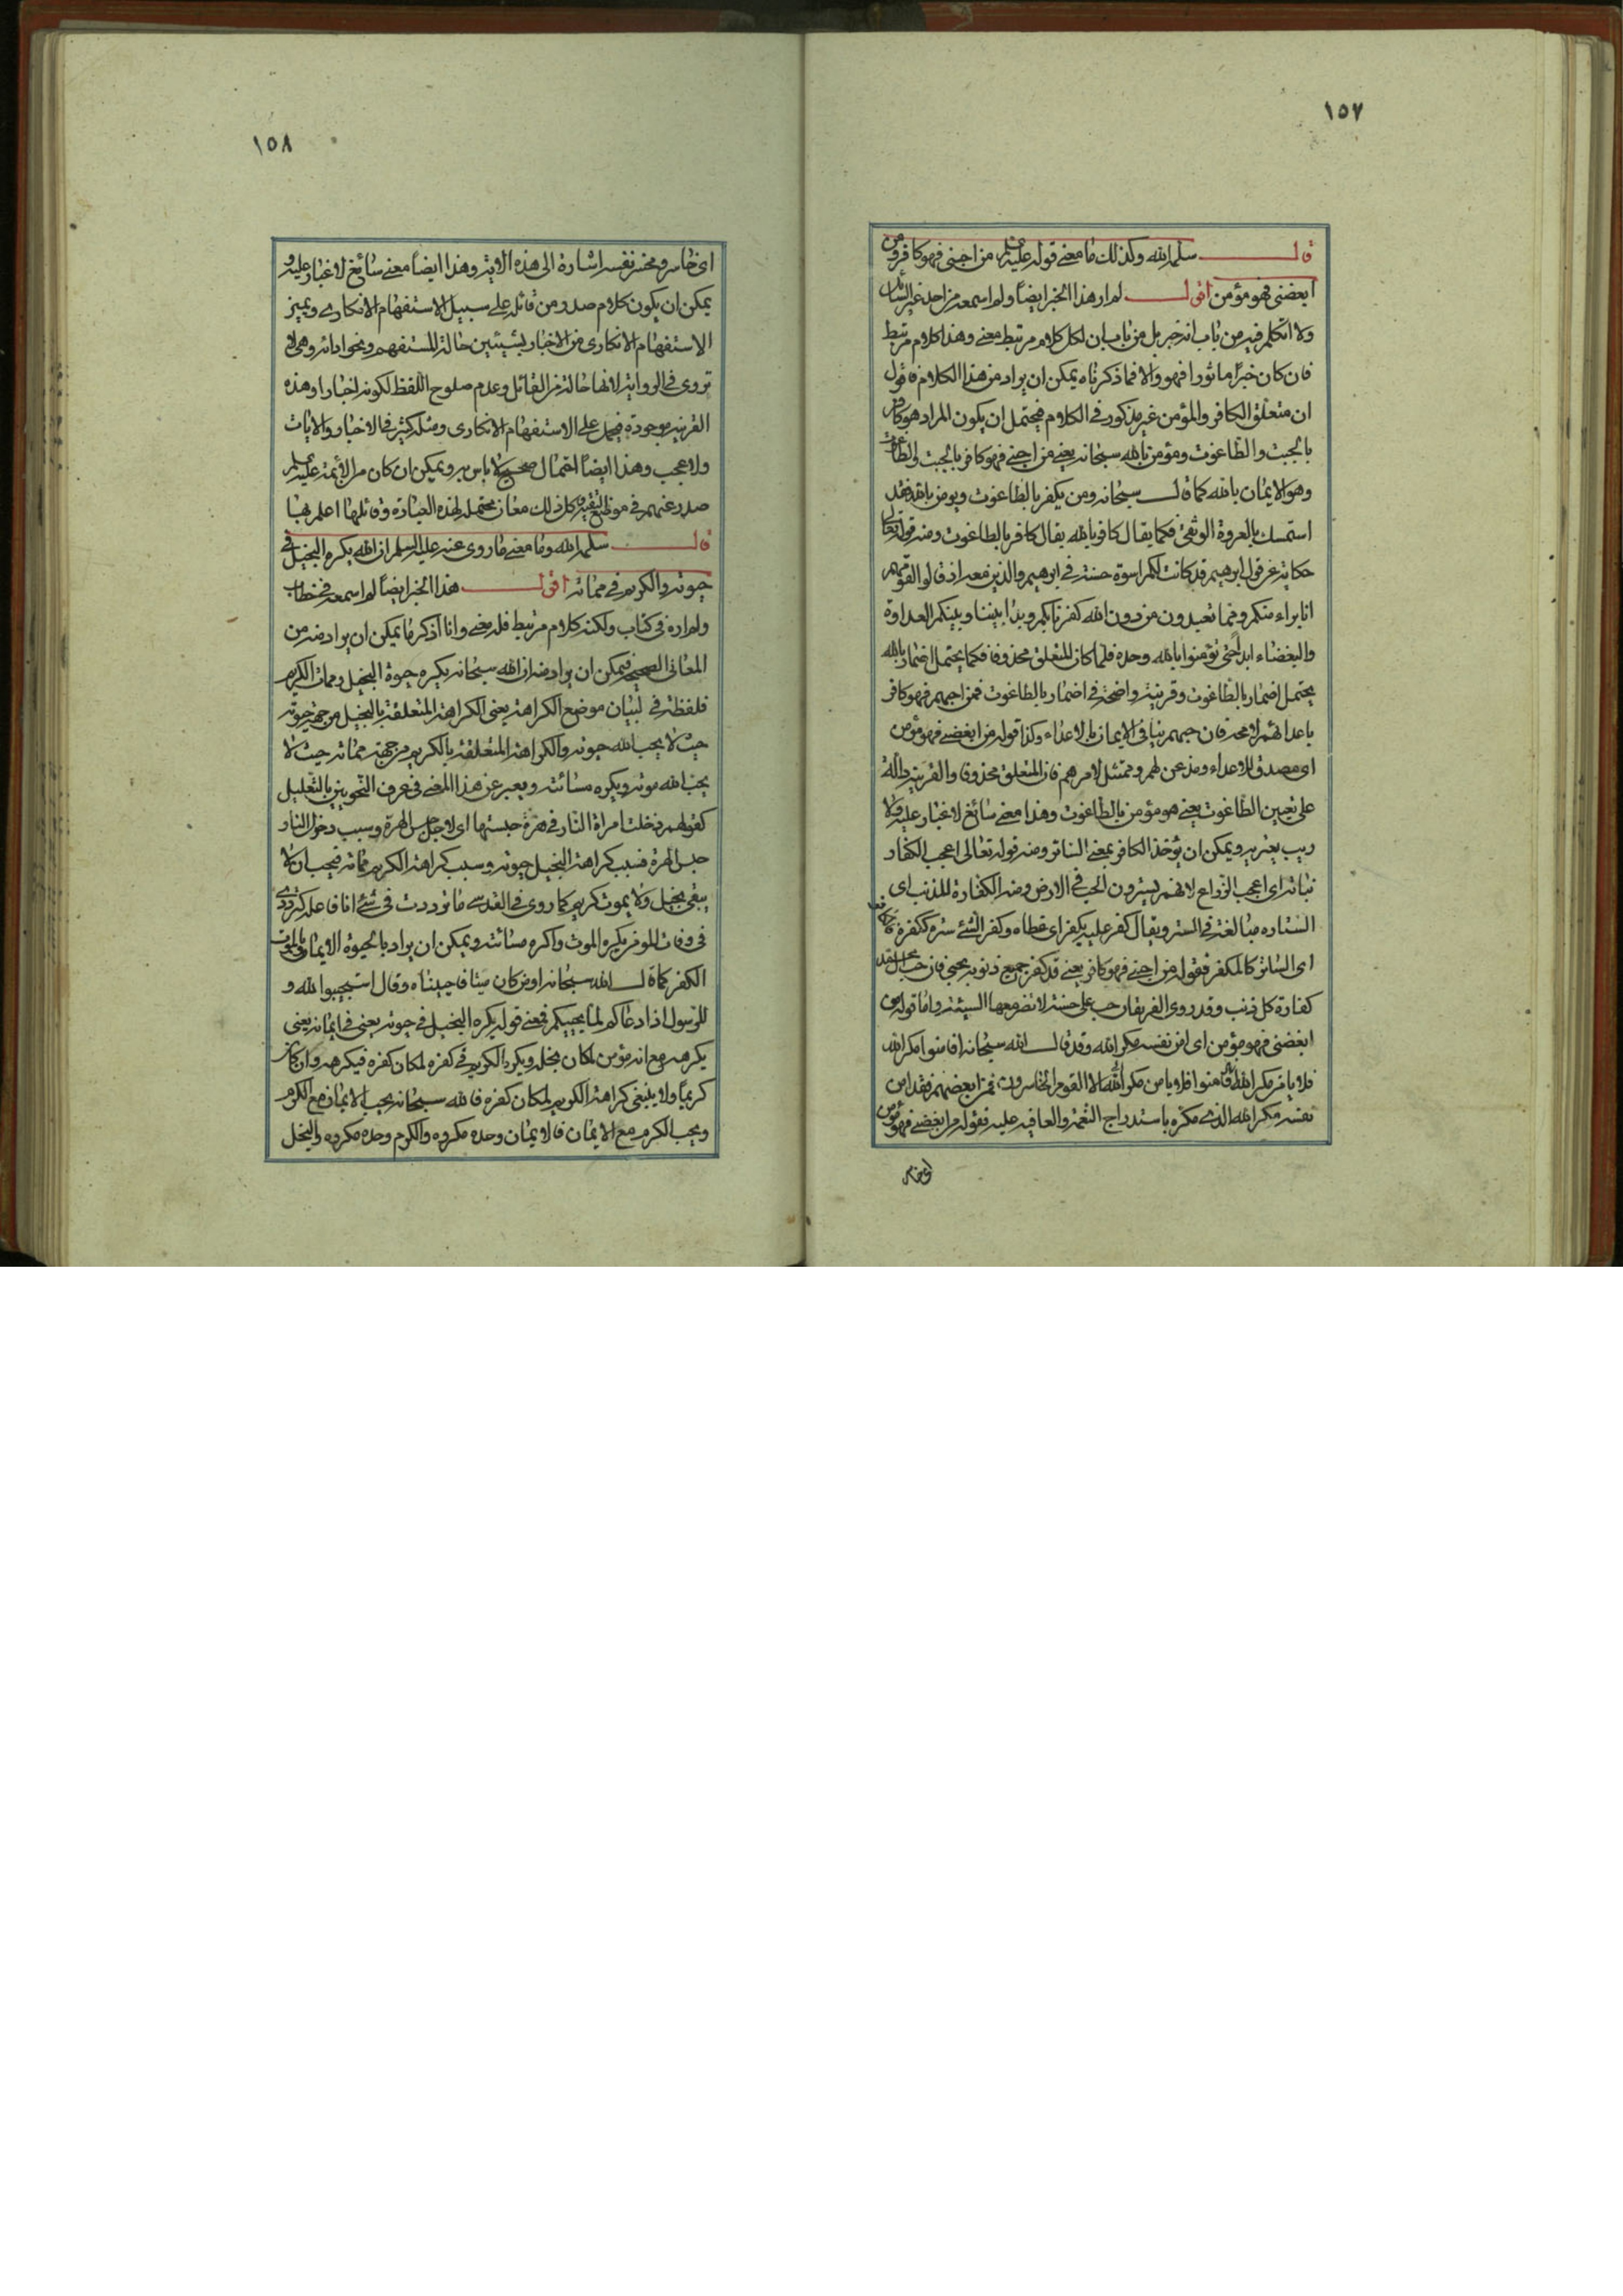 ١٥٧
قال سلمه الله وكذلك ما معنى قوله عليه السلم من احبني فهو كافر ومن
ابغضني فهو مؤمن اقول لم ار هذا الخبر ايضاً ولم اسمعه من احد غير السائل
ولا اتكلم فيه من باب انه خبر بل من باب ان لكل كلام مرتبط معنى وهذا كلام مرتبط
فان كان خبراً ماثورا فهو والا فما ذكرناه يمكن ان يراد من هذا الكلام فاقول
ان متعلق الكافر والمؤمن غير مذكور في الكلام فيحتمل ان يكون المراد هو كافر
بالجبت والطاغوت ومؤمن بالله سبحانه يعني من احبني فهو كافر بالجبت والطاغوت
وهو الايمان بالله كما قال سبحانه ومن يكفر بالطاغوت ويومن بالله فقد
استمسك بالعروة الوثقى فكما يقال كافر بالله يقال كافر بالطاغوت ومنه قوله تعالى
حكاية عن قول ابرهيم قد كانت لكم اسوة حسنة في ابرهيم والذين معه اذ قالوا لقومهم
انا براء منكم ومما تعبدون من دون الله كفرنا بكم وبدا بيننا وبينكم العداوة
والبغضاء ابداً حتى تؤمنوا بالله وحده فلما كان المتعلق محذوفا فكما يحتمل اضمار بالله
يحتمل اضمار بالطاغوت وقرينته واضحة في اضمار بالطاغوت فمن احبهم فهو كافر
باعدائهم لا محه فان حبهم ينافي الايمان بالاعداء وكذا قوله من ابغضني فهو مؤمن
اي مصدق للاعداء ومذعن لهم وممتثل لامرهم فان المتعلق محذوف والقرينة دالة
على تعيين الطاغوت يعني هو مؤمن بالطاغوت وهذا معنى سائغ لا غبار عليه ولا
ريب يعتريه ويمكن ان يؤخذ الكافر بمعنى الساتر ومنه قوله تعالى اعجب الكفار
نباته اي اعجب الزراع لانهم يسترون الحب في الارض ومنه الكفارة للمذنب اي
الستاره مبالغة في الستر ويقال كفر عليه يكفر اي غطاه وكفر الشئ ستره ككفره
اي الساتر كالمكفر فقوله من احبني فهو كافر يعني قد كفر جميع ذنوبه بحبي فان حب
كفارة كل ذنب وقد روى الفريقان حب علي حسنة لا تضر معها السيئة واما قوله من
ابغضني فهو مؤمن اي امن نفسه مكر الله وقد قال الله سبحانه افامنوا مكر الله
فلا يامن مكر الله الا القوم الخاسرون فمن ابغضهم فقد امن
نفسه مكر الله الذي مكره باستدراج النعمة والعافيه عليه فقوله من ابغضني فهو مؤمن
اي خاسر
١٥٨
اي خاسر ومخسر نفسه اشارة الى هذه الاية وهذا ايضاً معنى سائغ لا غبار عليه و
يمكن ان يكون كلام صدر من قائله على سبيل الاستفهام الانكاري ويميز
الاستفهام الانكاري من الاخبار بشيئين حالة المستفهم ونحو ادائه وهي لا
تروى في الرواية لانها حالة من القائل وعدم صلوح اللفظ لكونه اخبارا وهذه
القرينة موجودة فيحمل على الاستفهام الانكاري ومثله كثير في الاخبار والايات
ولا عجب وهذا ايضاً احتمال صحيح لا باس به ويمكن ان كان من الائمة عليهم السلم
صدر عنهم في موضع التقية وكل ذلك معان محتملة لهذه العبارة وقائلها اعلم بها
قال سلمه الله وما معنى ما روى عنه عليه السلم ان الله يكره البخيل في
حيوته والكريم في مماته اقول هذا الخبر ايضاً لم اسمعه في خطاب
ولم اره في كتاب ولكنه كلام مرتبط فله معنى وانا اذكر ما يمكن ان يراد منه من
المعاني الصحيحة فيمكن ان يراد منه ان الله سبحانه يكره حيوة البخيل وممات الكريم
فلفظة في لبيان موضع الكراهة يعني الكراهة المتعلقة بالبخيل من جهة حيوته
حيث لا يحب الله حيوته والكراهة المتعلقة بالكريم من جهة مماته حيث لا
يحب الله موته ويكره مسائته ويعبر عن هذا المعنى في عرف النحويين بالتعليل
كقولهم دخلت امراة النار في هرة حبستها اي لاجل حبس الهرة وسبب دخول النار
حبس الهرة فسبب كراهة البخيل حيوته وسبب كراهة الكريم مماته فيحب ان لا
يبقى بخيل ولا يموت كريم كما روى في القدسي ما ترددت في شئ انا فاعله كترددي
في وفات المؤمن يكره الموت واكره مسائته ويمكن ان يراد بالحيوة الايمان وبالموت
الكفر كما قال الله سبحانه اومن كان ميتا فاحييناه وقال استجيبوا لله و
للرسول اذا دعاكم لما يحييكم فمعنى قوله يكره البخيل في حيوته يعني في ايمانه يعني
يكرهه مع انه مؤمن لمكان بخله ويكره الكريم في كفره لمكان كفره فيكرهه وان كان
كريماً ولا ينبغي كراهة الكريم لمكان كفره فالله سبحانه يحب الايمان مع الكرم
ويحب الكرم مع الايمان فالايمان وحده مكروه والكرم وحده مكروه والبخل